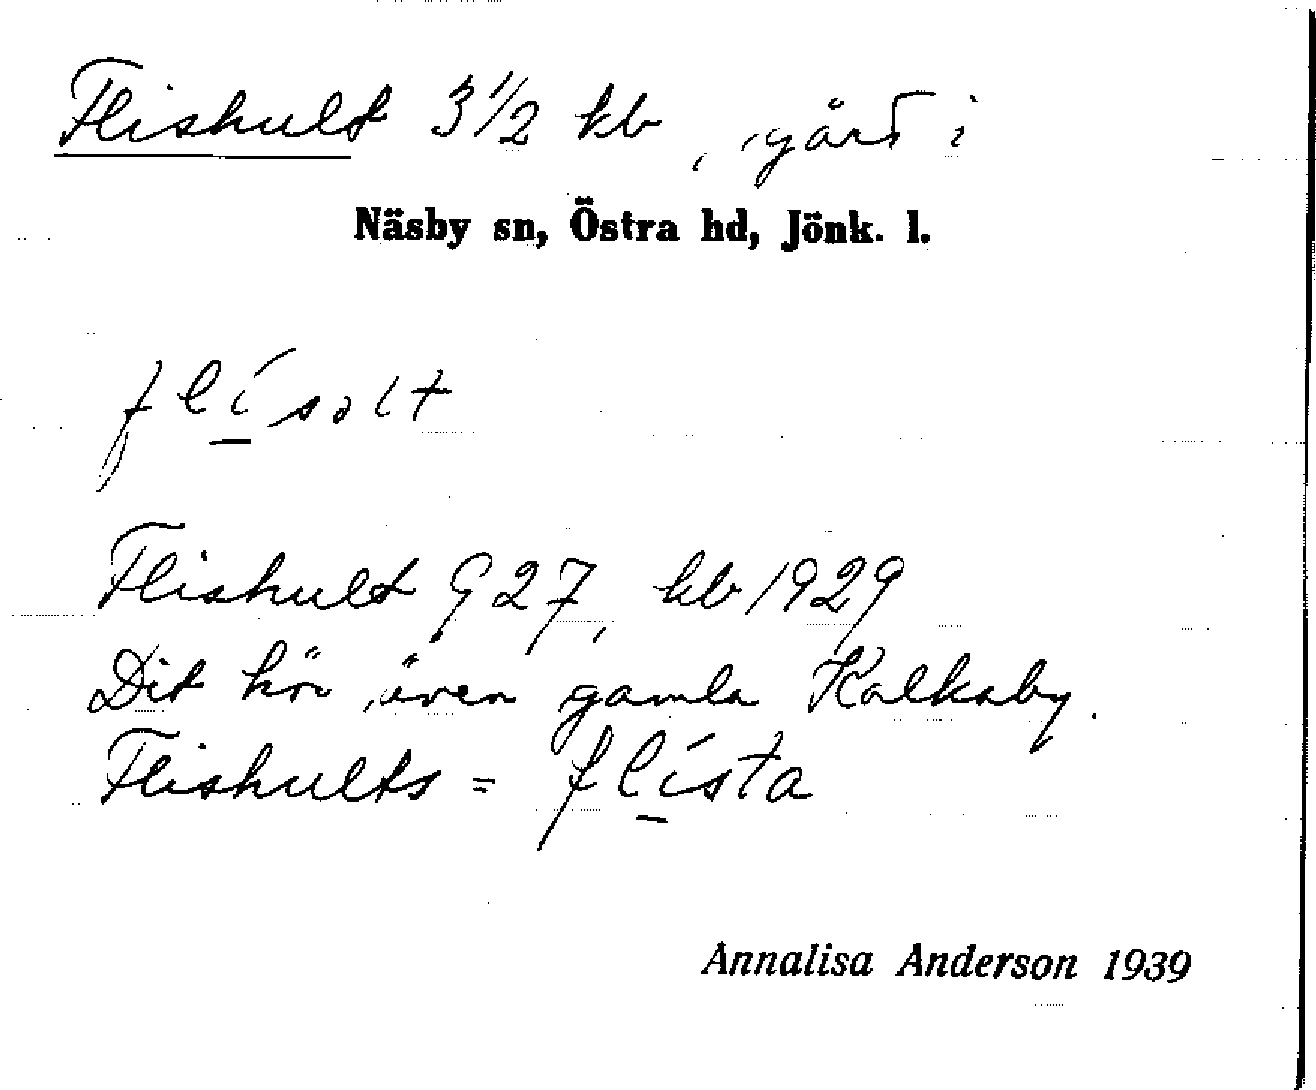 Flishult 3 1/2 kb, gård i
Näsby sn, Östra hd, Jönk. l.
flísalt
Flishult G 27, kb 1929
Dit hör även gamla Kalksby.
Flishults = flísta
Annalisa Anderson 1939